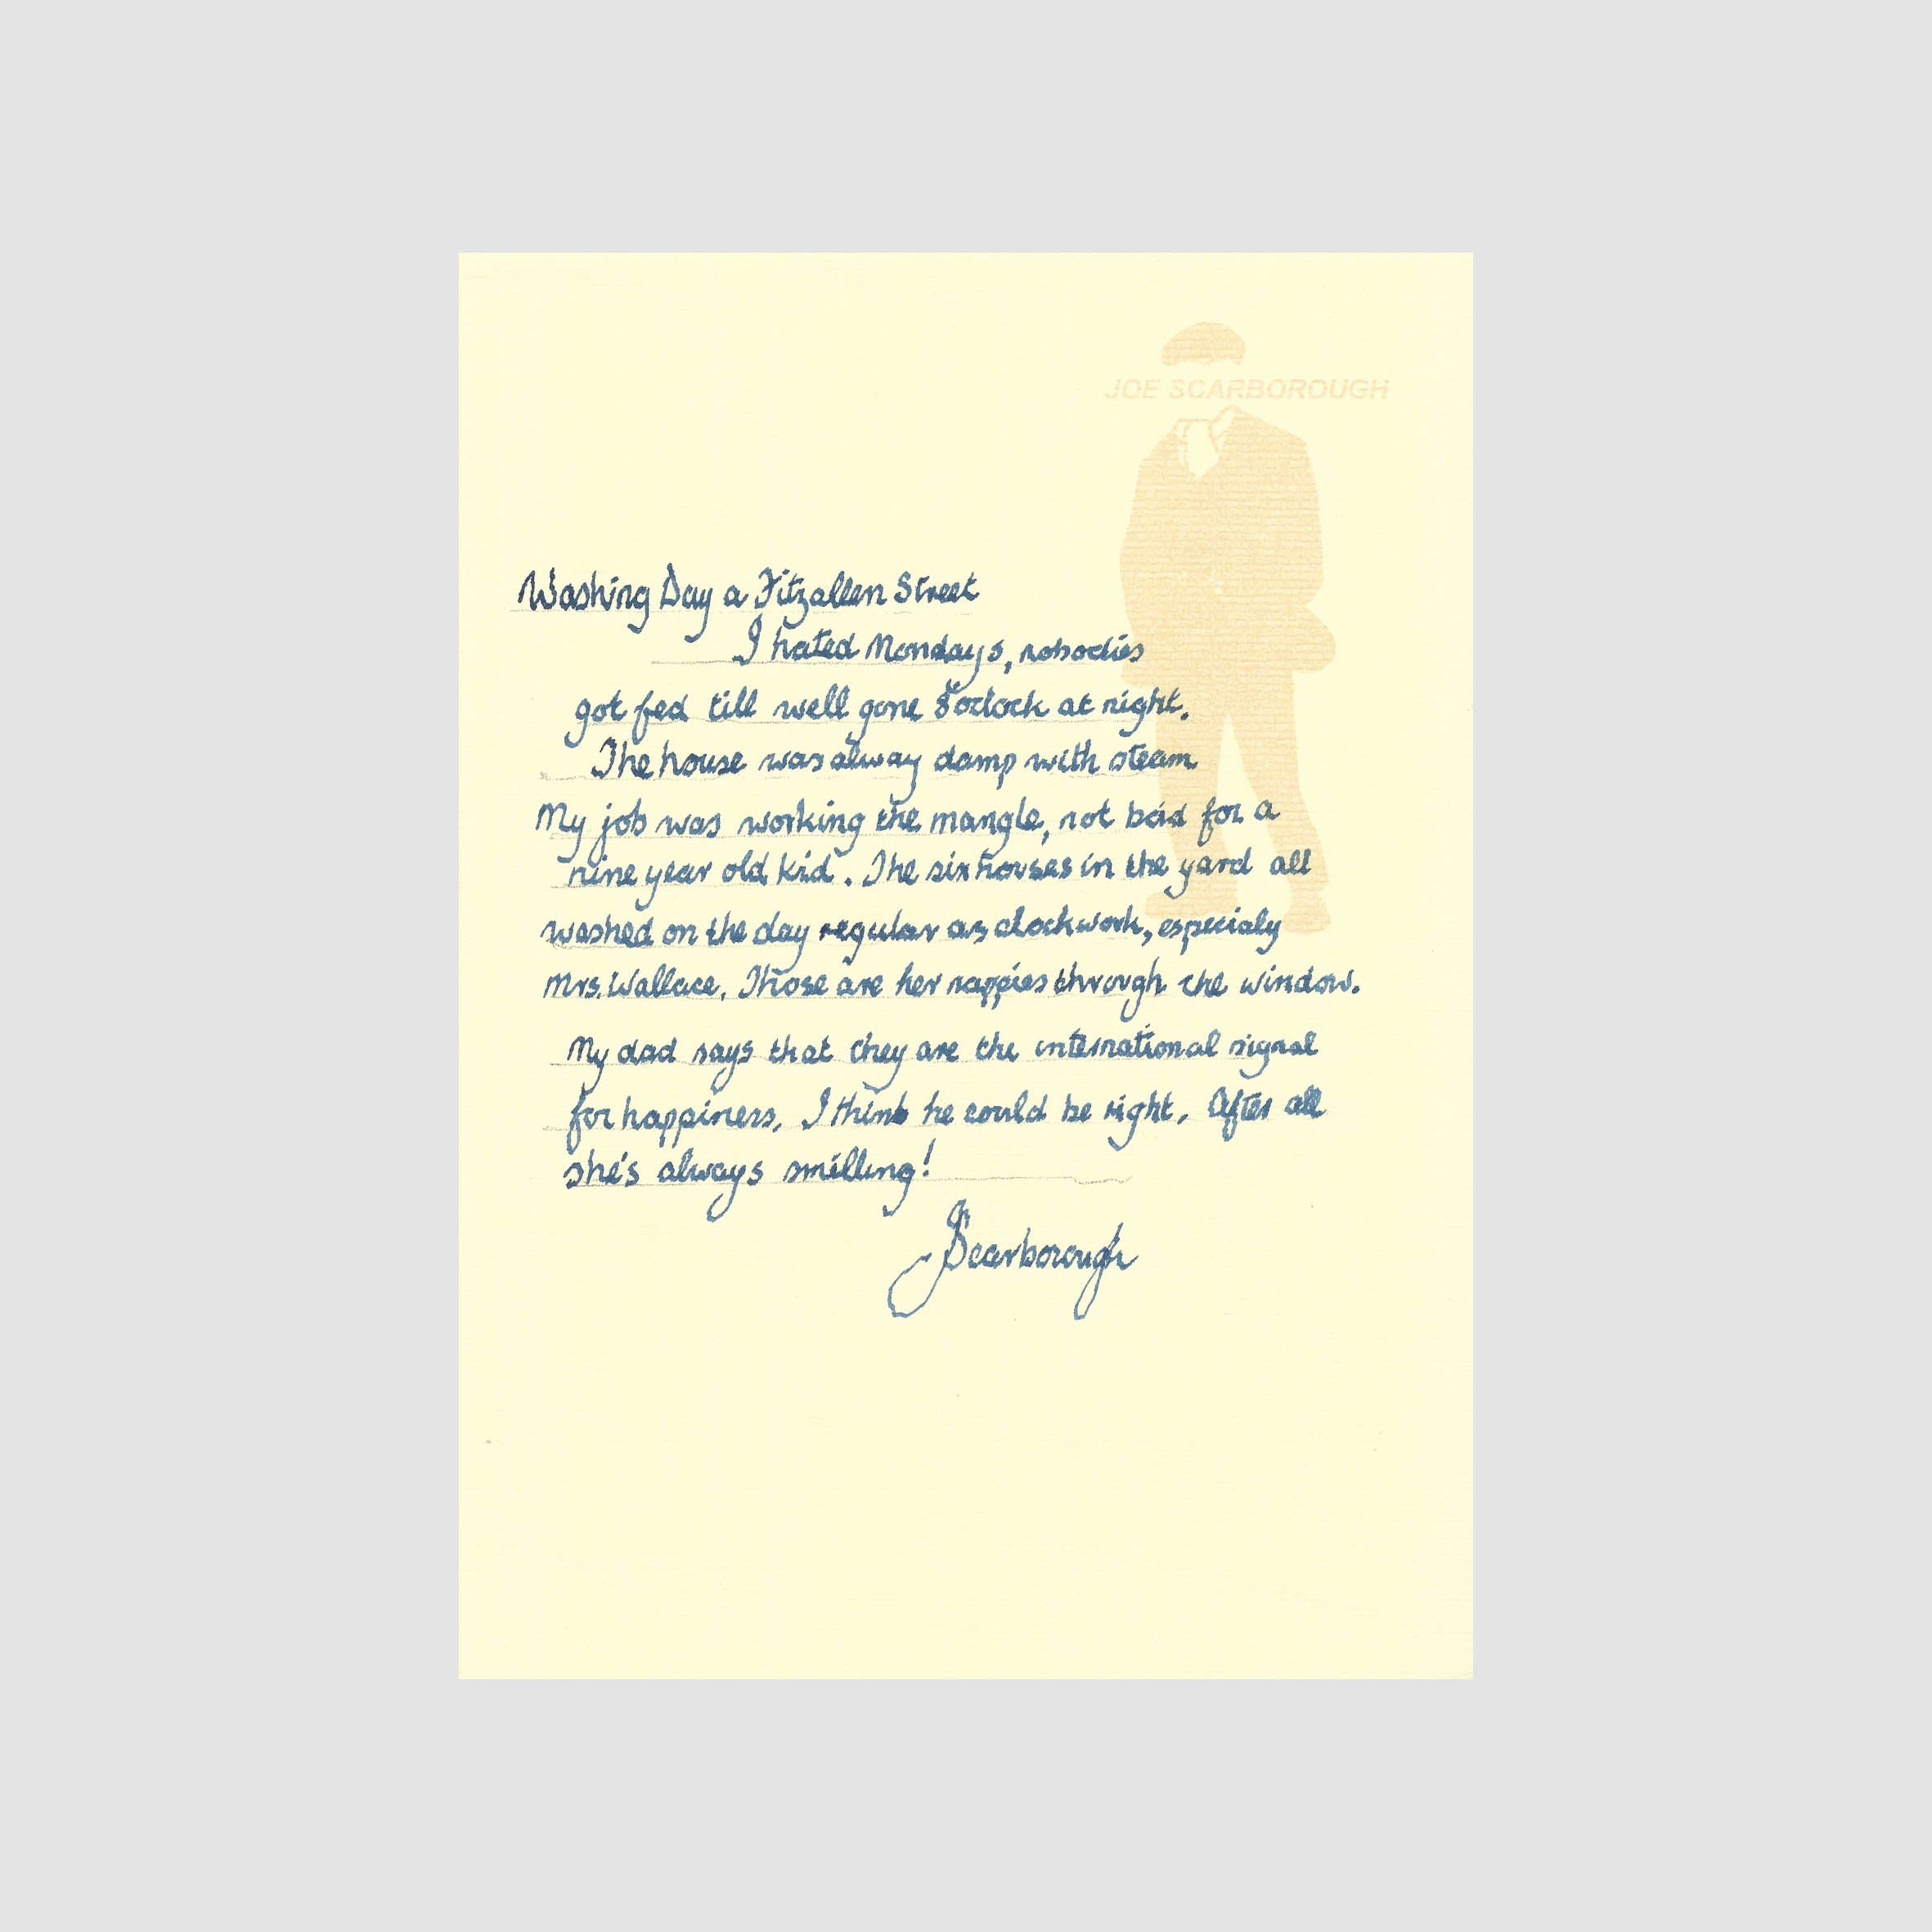 JOE SCARBOROUGH
Washing Day a Fitzallen Street
I hated Mondays, nobodies
got fed till well gone 8 oclock at night.
The house was alway damp with steam
My job was working the mangle, not bad for a
nine year old kid. The six houses in the yard all
washed on the day regular as clockwork, especialy
Mrs. Wallace. Those are her nappies through the window.
My dad says that they are the international signal
for happiness, I think he could be right. After all
she's always smilling!
J Scarborough